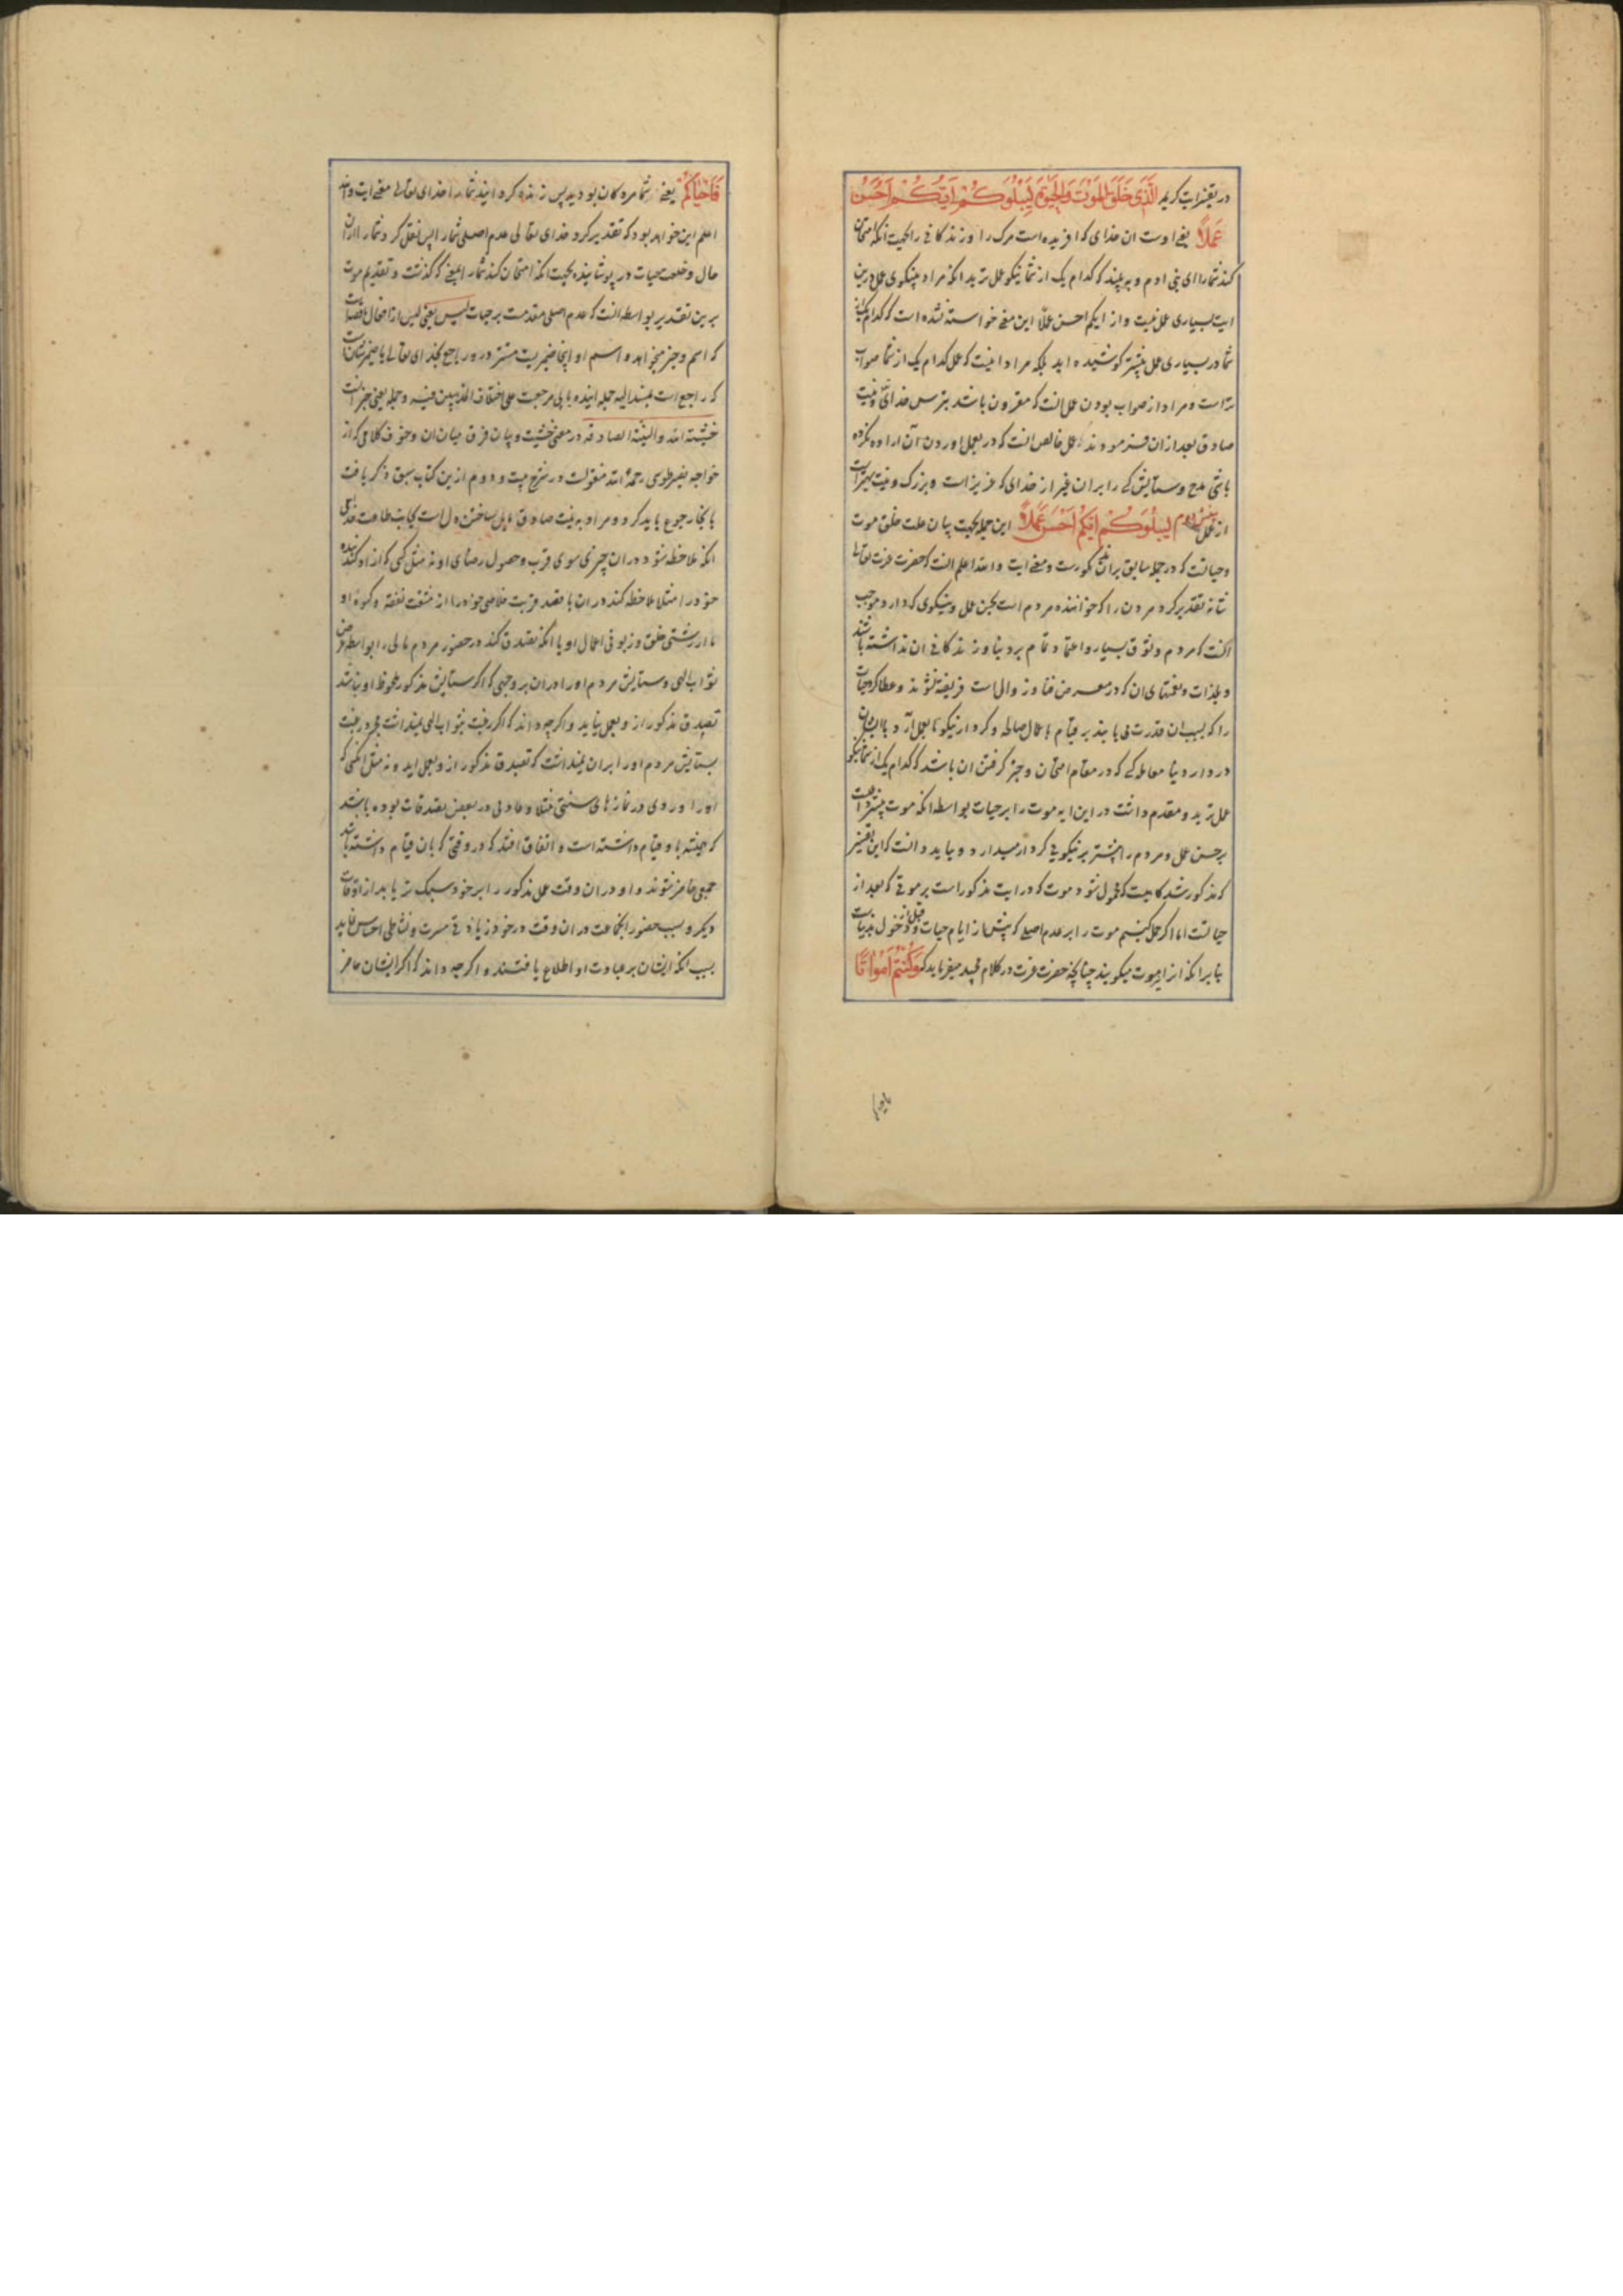 در تفسیر ایت کریمه الَّذِی خَلَقَ المَوْتَ وَالحَیٰوةَ لِیَبْلُوَكُمْ اَیُّكُمْ اَحْسَنُ
عَمَلاً یعنی اوست ان خدای که افریده است مرک را و زندکانی را بجهت انکه امتحان
کند شما را ای بنی ادم و به بیند که کدام یک از شما نیکو عمل ترید انکه مراد به نیکوی عمل درین
ایت بسیاری عمل نیست و از ایکم احسن عملا این معنی خواسته نشده است که کدام یک از
شما در بسیاری عمل بیشتر کوشیده اید بلکه مراد اینست که عمل کدام یک از شما صواب
تر است و مراد از صواب بودن عمل انست که مقرون باشد بترس خدای و نیت
صادق بعد از ان فرمودند عمل خالص انست که در بعمل اوردن آن اراده نکرده
باشی مدح و ستایش کسی را بران غیر از خدای که عزیز است و بزرک و نیت بهتر است
از عمل لِیَبْلُوَكُمْ اَیُّكُمْ اَحْسَنُ عَمَلاً این جمله بجهت بیان علت خلق موت
و حیاتست که در جمله سابق بران مذکورست و معنی ایت والله اعلم انست که حضرت عزت تعالی
شانه تقدیر کرد مردن را که خواننده مردم است بحسن عمل و نیکوی کردار و موجب
انست که مردم وثوق بسیار و اعتماد تمام بر دنیا و زندکانی ان نداشته باشند
و بلذات و نعمتهای ان که در معرض فنا و زوال است فریفته نشوند و عطا کرد حیات
را که بسبب ان قدرت می یابند بر قیام باعمال صالحه و کردار نیکو تا بعمل آرد با ایشان
در دار دنیا معامله کسی که در مقام امتحان و خبر کرفتن ان باشد که کدام یک از شما نیکو
عمل ترید و مقدم داشت در این ایه موت را بر حیات بواسطه انکه موت بیشتر داعیست
بر حسن عمل و مردم را بیشتر بر نیکویی کردار میدارد و بباید دانست که این تفسیر
که مذکور شد کاهیست که محمول شود موت که در ایت مذکور است بر موتی که بعد از
حیاتست اما اکر حمل کنیم موت را بر عدم اصلی که پیش از ایام حیات و قبل از دخول بدنیاست
بنا بر انکه انرا موت میکویند چنانچه حضرت عزت در کلام مجید میفرماید که وَكُنْتُمْ اَمْوَاتًا
فَاَحْیَاكُمْ یعنی شما مردکان بودید پس زنده کردانید شما را خدای تعالی معنی ایت والله
اعلم این خواهد بود که تقدیر کرد خدای تعالی عدم اصلی شما را پس نقل کرد شما را از ان
حال و خلعت حیات در پوشانیده بجهت انکه امتحان کند شما را بمعنی که کذشت و تقدیم موت
برین تقدیر بواسطه انست که عدم اصلی مقدمست بر حیات لیس یعنی لیس از افعال ناقصه است
که اسم و خبر میخواهد و اسم او اینجا ضمیریست مستتر در و راجع بخدای تعالی یا ضمیر شان است
خشیة الله والنیة الصادقة در معنی خشیت و بیان فرق میان ان و خوف کلامی که از
خواجه نصیر طوسی رحمة الله منقولست در شرح حدیث و دوم ازین کتاب سبق ذکر یافت
بانجا رجوع باید کرد و مراد به نیت صادق مایل ساختن دل است بجانب طاعت خدای
انکه ملاحظه شود دران چیزی سوی قرب و حصول رضای او نه مثل کسی که ازاد کند بنده
خود را مثلا ملاحظه کند دران با قصد قربت خلاصی خود را از مشقت نفقه و کسوة او
یا از زشتی خلق و زبونی اعمال او یا انکه تصدق کند در حضور مردم مالی را بواسطه غرض
ثواب الهی و ستایش مردم او را دران بر وجهی که اکر ستایش مذکور ملحوظ او نباشد
تصدق مذکور از و بعمل نیاید و اکرچه داند که اکر رغبت بثواب الهی نمیداشت مجرد رغبت
بستایش مردم او را بران نمیداشت که تصدق مذکور از و بعمل اید و نه مثل انکسی که
او را وردی در نمازهای سنتی مثلا و عادتی در بعضی تصدقات بوده باشد
که همیشه باو قیام داشته است و اتفاق افتد که در وقتی که بان قیام داشته باشد
جمعی حاضر شوند و او دران وقت عمل مذکور را بر خود سبک تر یابد از اوقات
دیکر و بسبب حضور انجماعت دران وقت در خود زیادتی مسرت و نشاطی احساس نماید
بسبب انکه ایشان بر عبادت او اطلاع یافتند و اکرچه داند که اکر ایشان حاضر